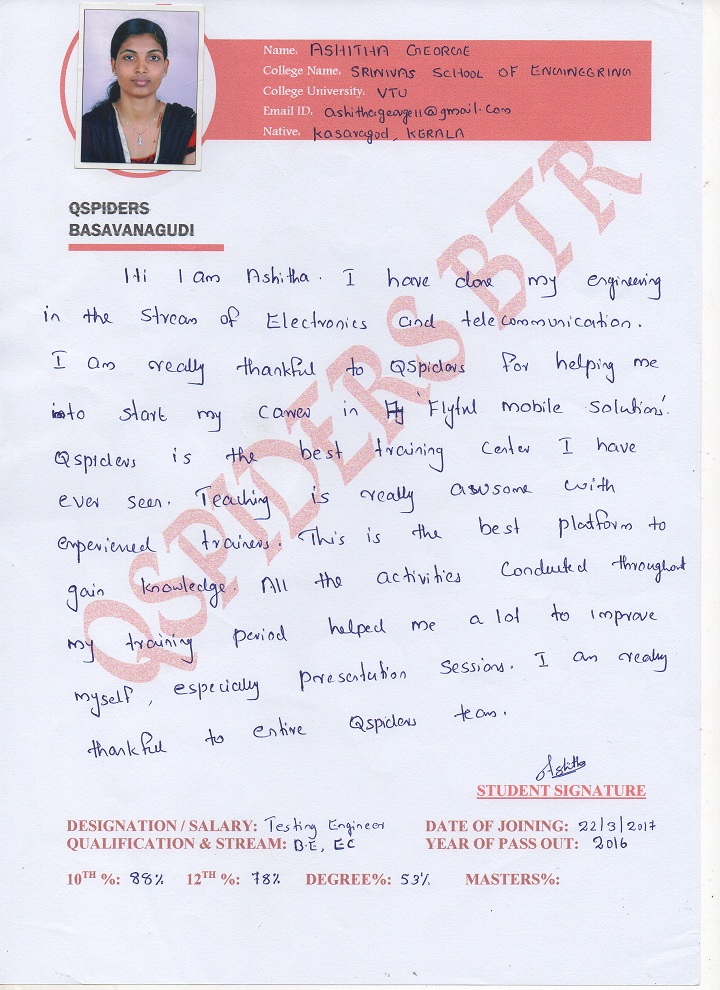 Name. ASHITHA GEORGE
College Name. SRINIVAS SCHOOL OF ENGINEERING
College University. VTU
Email ID. ashithageorge11@gmail.com
Native. Kasaragod, KERALA
QSPIDERS
BASAVANAGUDI
QSPIDERS BTR
Hi I am Ashitha. I have done my engineering
in the stream of Electronics and telecommunication.
I am really thankful to QSpiders for helping me
to start my career in 'Flytxt mobile solutions'.
Qspiders is the best training center I have
ever seen. Teaching is really awsome with
experienced trainers. This is the best platform to
gain knowledge. All the activities conducted throughout
my training period helped me a lot to improve
myself, especially presentation sessions. I am really
thankful to entire Qspiders team.
Ashitha
STUDENT SIGNATURE
DESIGNATION / SALARY: Testing Engineer DATE OF JOINING: 22/3/2017
QUALIFICATION & STREAM: B.E, EC YEAR OF PASS OUT: 2016
10TH %: 88% 12TH %: 78% DEGREE%: 53% MASTERS%: